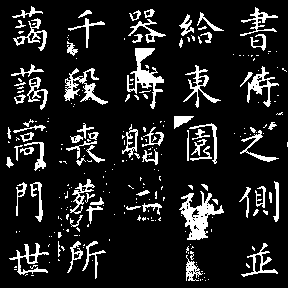 書侍之側並
給東園祕
器賵贈二
千段喪葬所
藹藹高門世